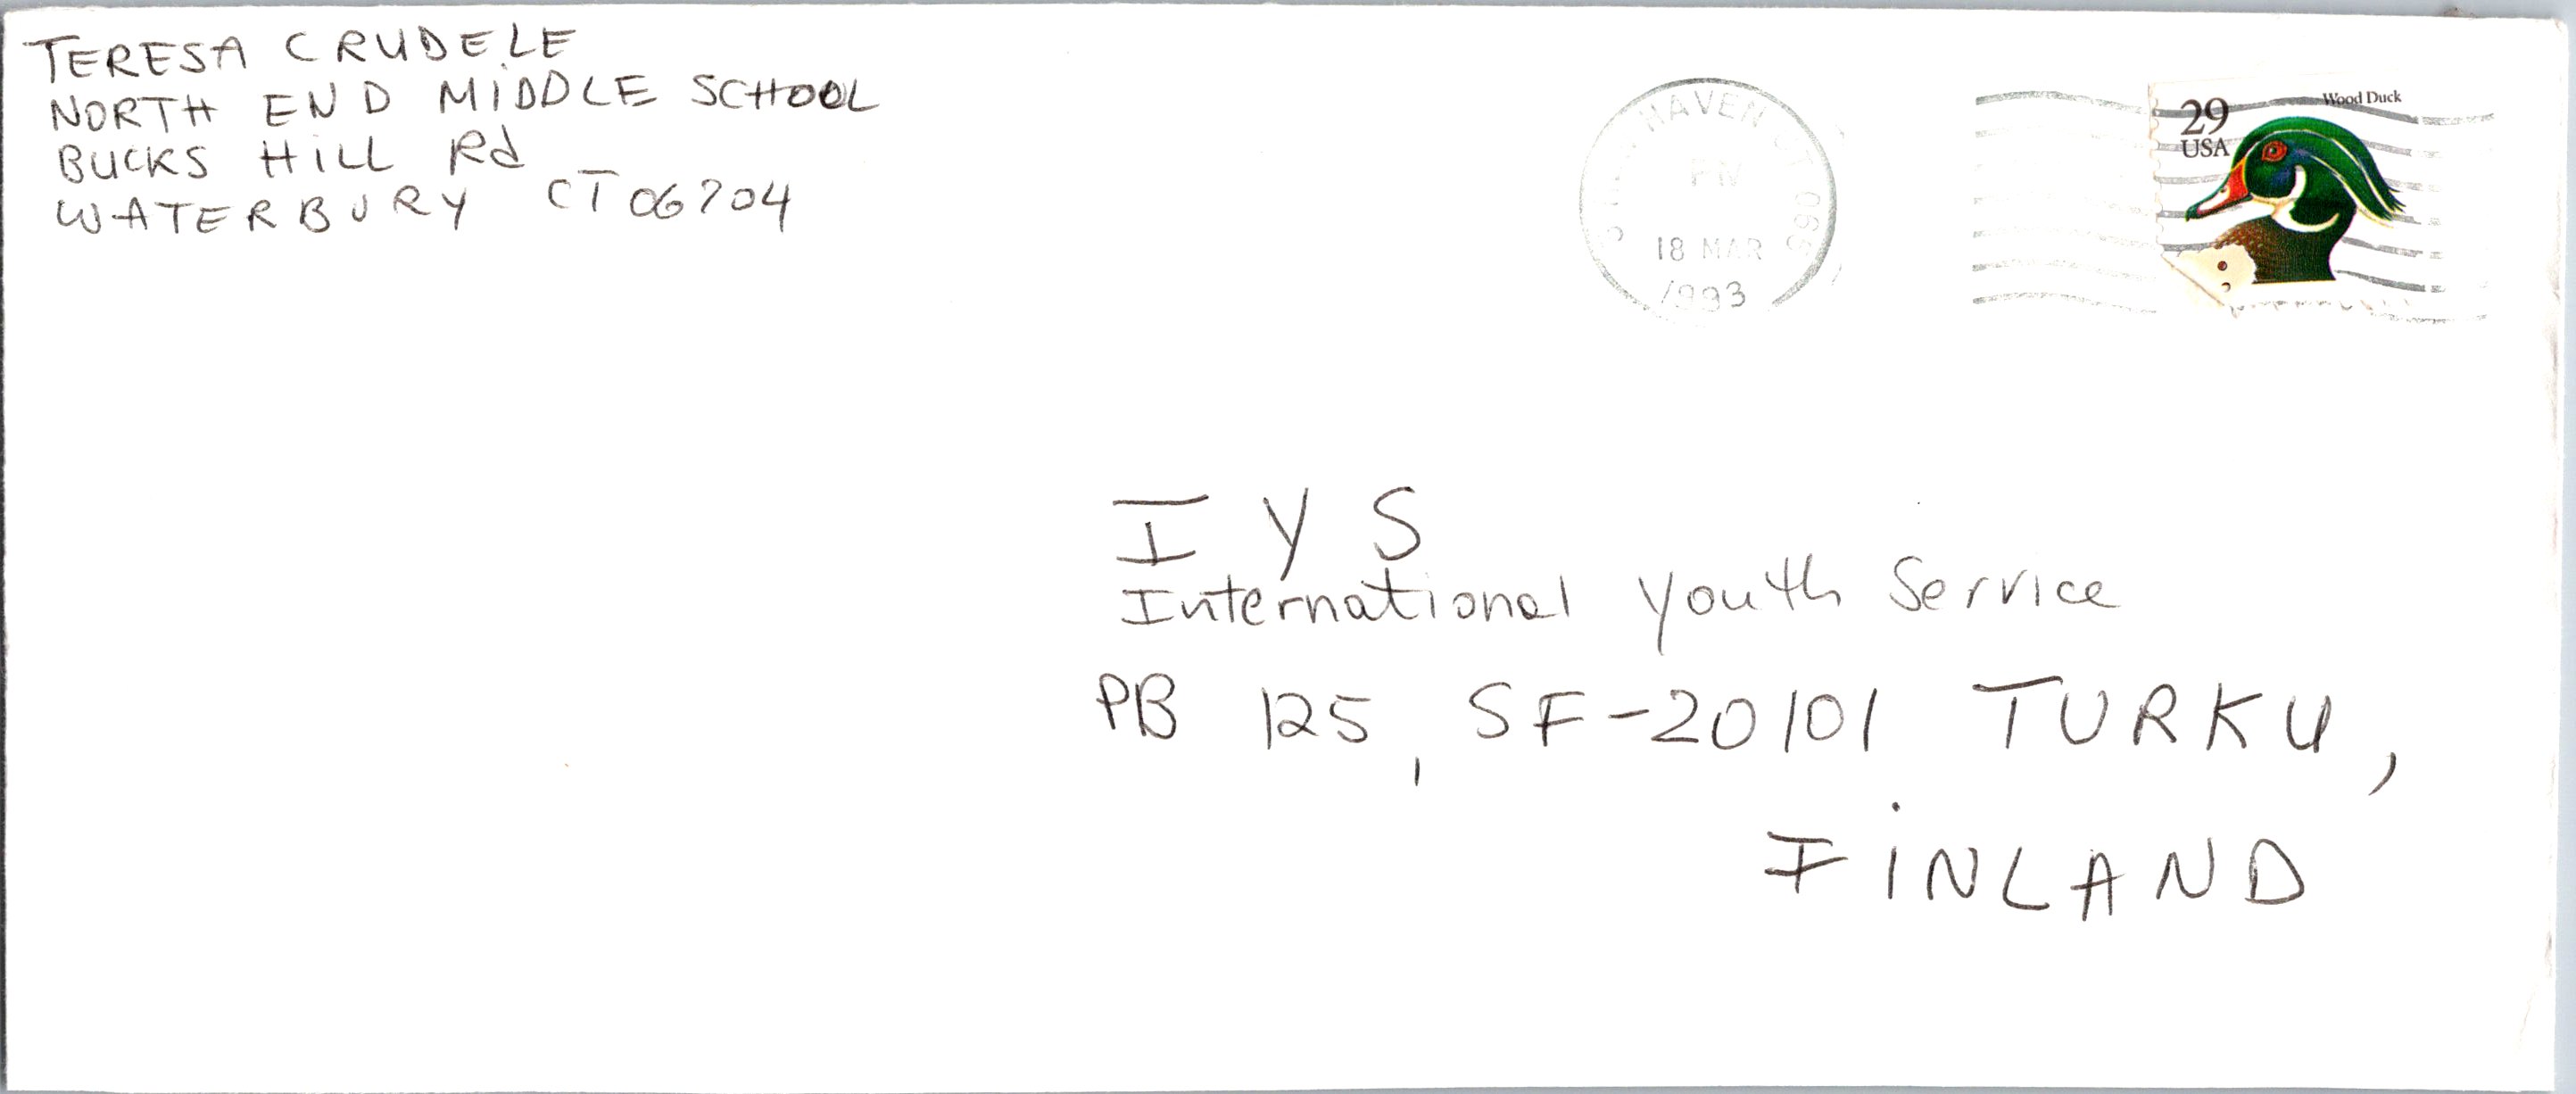 TERESA CRUDELE
NORTH END MIDDLE SCHOOL
BUCKS HILL Rd
WATERBURY CT 06704
HAVEN CT 066
PM
18 MAR
1993
29
USA
Wood Duck
I Y S
International Youth Service
PB 125, SF-20101 TURKU,
FINLAND